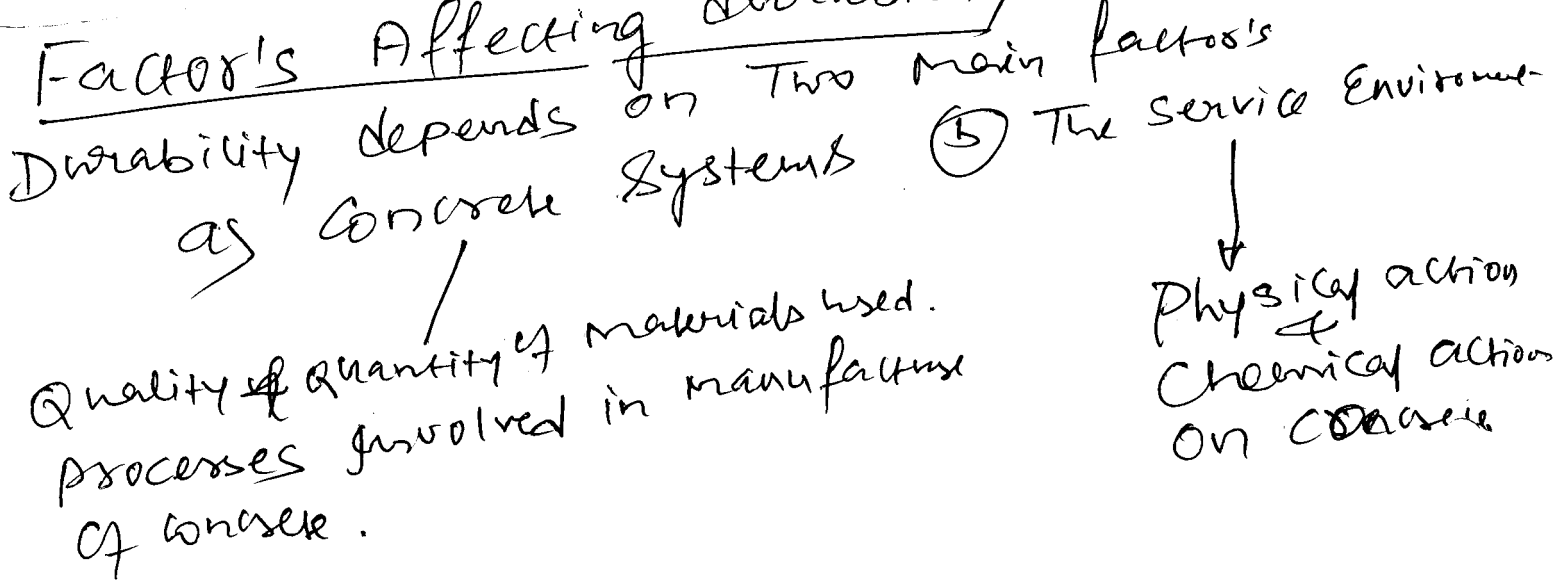 Factor's Affecting
Durability depends on Two main factor's
as Concrete Systems ⓑ The Service Enviroment
Quality & Quantity of materials used.
processes involved in manufacture
of concrete.
Physical action
&
Chemical action
on concrete